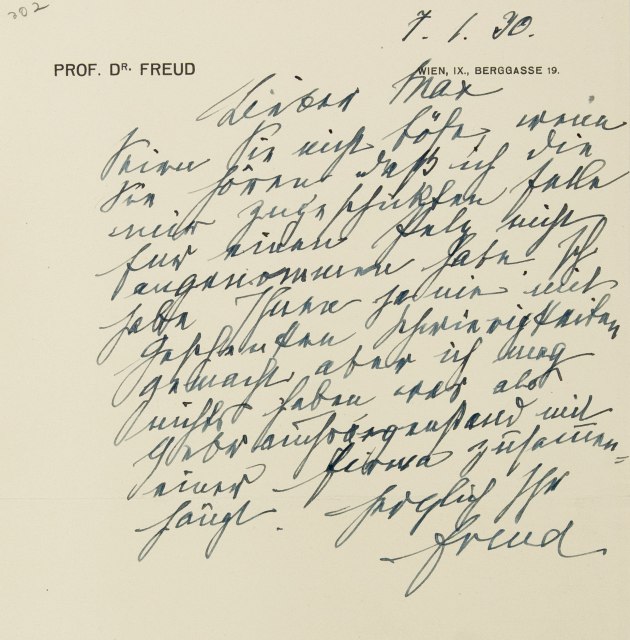 302
7. 1. 30.
PROF. DR. FREUD
WIEN, IX., BERGGASSE 19.
Lieber Max
Seien Sie nicht böse, wenn
Sie hören daß ich die
mir zugeschickten Felle
für einen Pelz nicht
angenommen habe Ich
habe Ihnen ja nie mit
Geschenken Schwierigkeiten
gemacht, aber ich mag
nichts haben was als
Gebrauchsgegenstand mit
einer Firma zusammen=
hängt. Herzlich Ihr
Freud